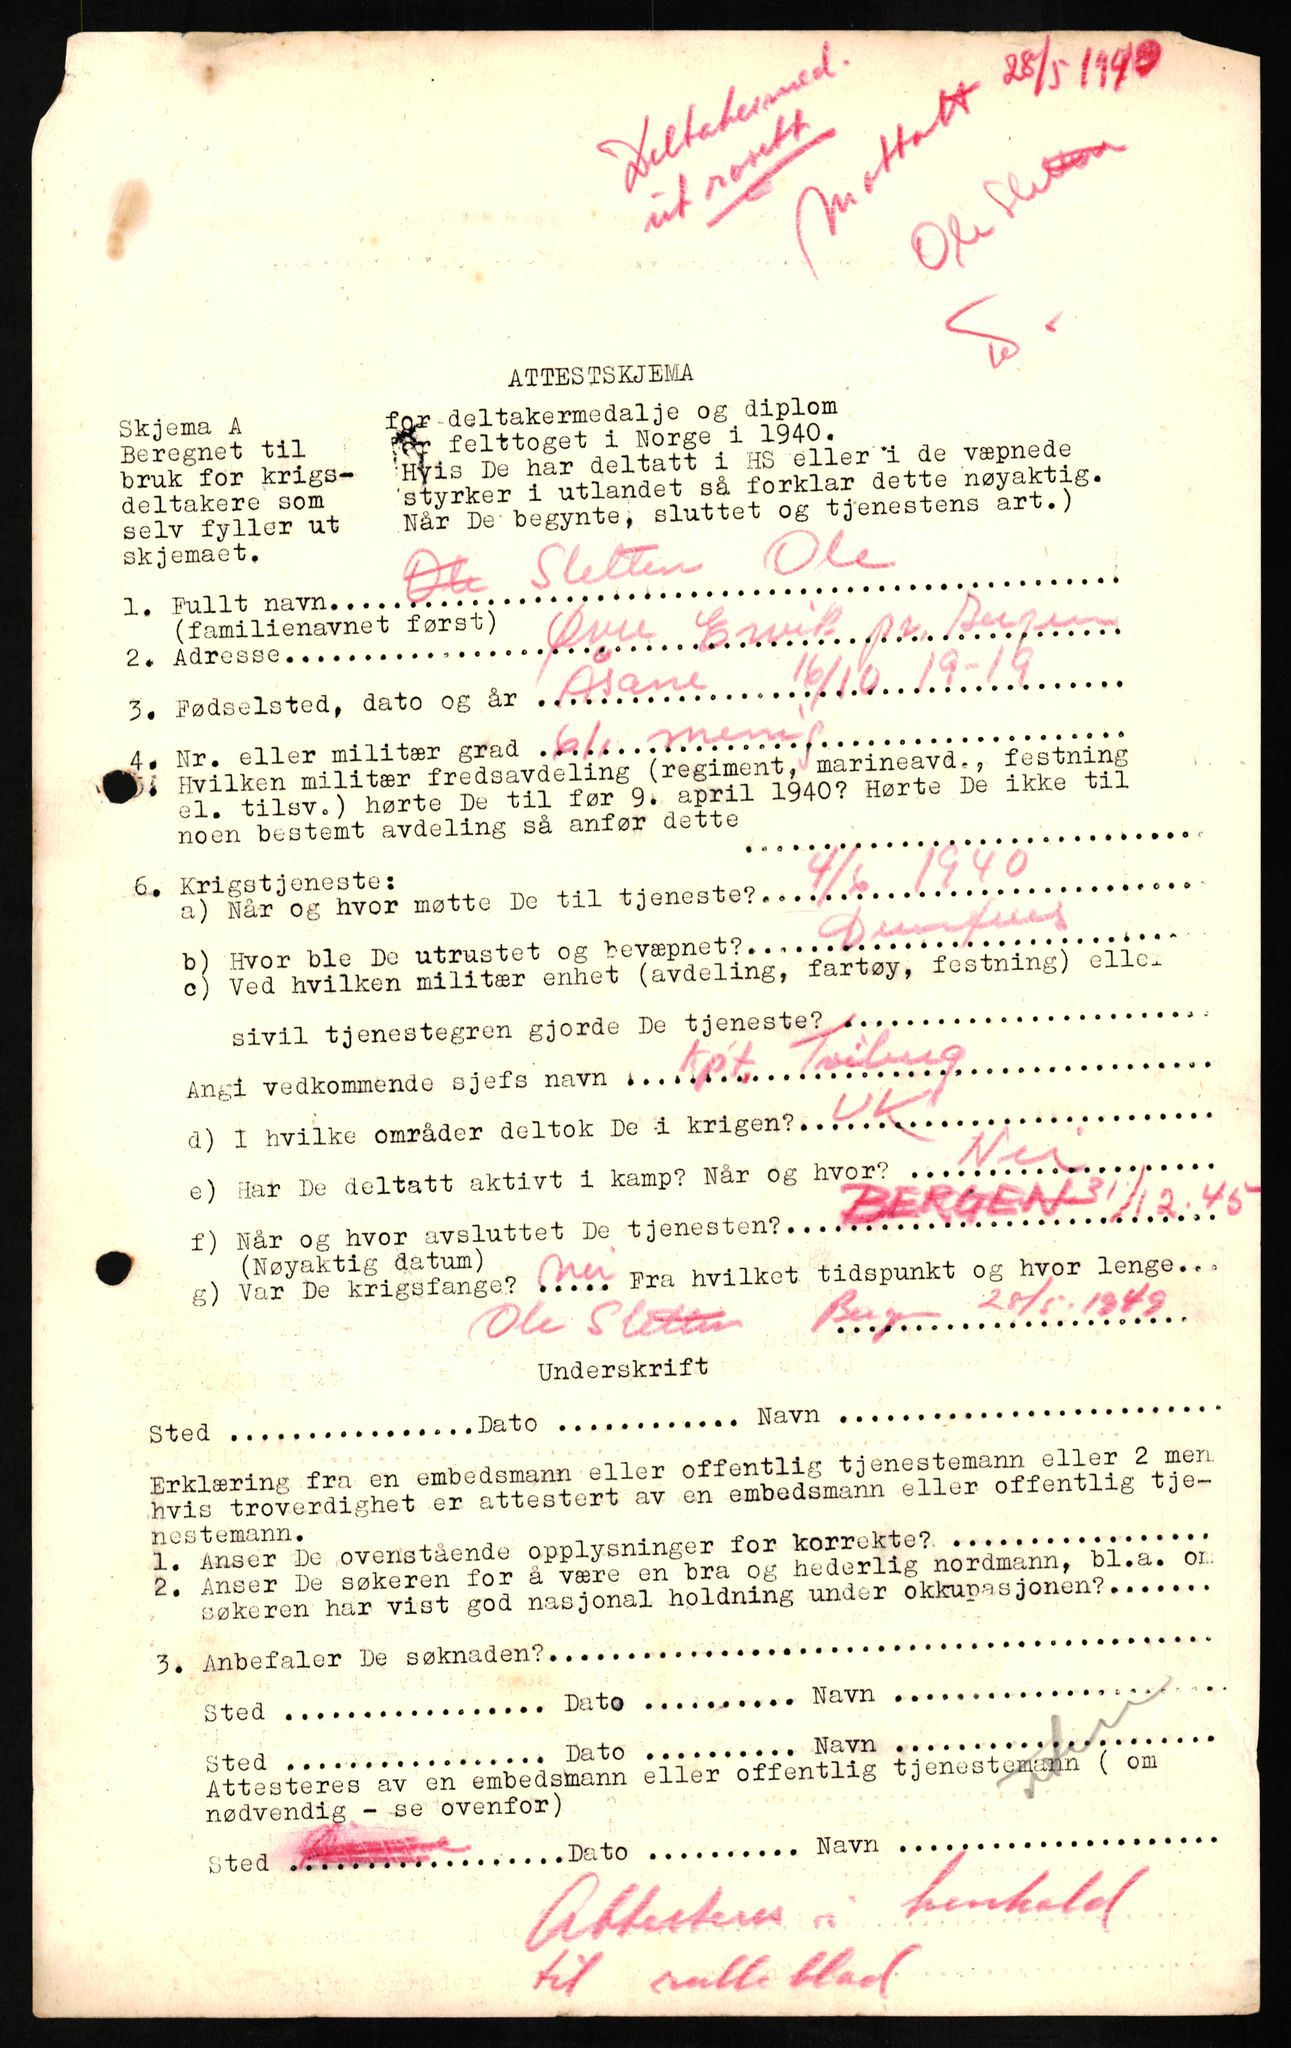 Deltakermed.
ut rosett
Mottatt 28/5 1949
Ole Sletten
ATTESTSKJEMA
Skjema A
Beregnet til
bruk for krigs-
deltakere som
selv fyller ut
skjemaet.
for deltakermedalje og diplom
for felttoget i Norge i 1940.
Hvis De har deltatt i HS eller i de væpnede
styrker i utlandet så forklar dette nøyaktig.
Når De begynte, sluttet og tjenestens art.)
1. Fullt navn..... Ole Sletten Ole
(familienavnet først)
2. Adresse..... Øvre Ervik pr. Bergen
3. Fødselsted, dato og år ..... Åsane 16/10 19-19
4. Nr. eller militær grad ..... menig
5. Hvilken militær fredsavdeling (regiment, marineavd., festning
el. tilsv.) hørte De til før 9. april 1940? Hørte De ikke til
noen bestemt avdeling så anfør dette .....
6. Krigstjeneste:
a) Når og hvor møtte De til tjeneste?..... 4/6 1940
b) Hvor ble De utrustet og bevæpnet?..... Dumfries
c) Ved hvilken militær enhet (avdeling, fartøy, festning) eller
sivil tjenestegren gjorde De tjeneste? .....
Angi vedkommende sjefs navn ..... Kpt.
d) I hvilke områder deltok De i krigen?..... UK
e) Har De deltatt aktivt i kamp? Når og hvor? ..... Nei
f) Når og hvor avsluttet De tjenesten?..... BERGEN 31/12.45
(Nøyaktig datum)
g) Var De krigsfange? Nei ..... Fra hvilket tidspunkt og hvor lenge...
Ole Sletten Bergen 28/5.1949
Underskrift
Sted ..... Dato ..... Navn .....
Erklæring fra en embedsmann eller offentlig tjenestemann eller 2 men
hvis troverdighet er attestert av en embedsmann eller offentlig tje-
nestemann.
1. Anser De ovenstående opplysninger for korrekte? .....
2. Anser De søkeren for å være en bra og hederlig nordmann, bl.a. om
søkeren har vist god nasjonal holdning under okkupasjonen?.....
3. Anbefaler De søknaden?.....
Sted ..... Dato ..... Navn .....
Sted ..... Dato ..... Navn .....
Attesteres av en embedsmann eller offentlig tjenestemann ( om
nødvendig - se ovenfor)
Sted ..... Dato ..... Navn .....
Attesteres i henhold
til rulleblad